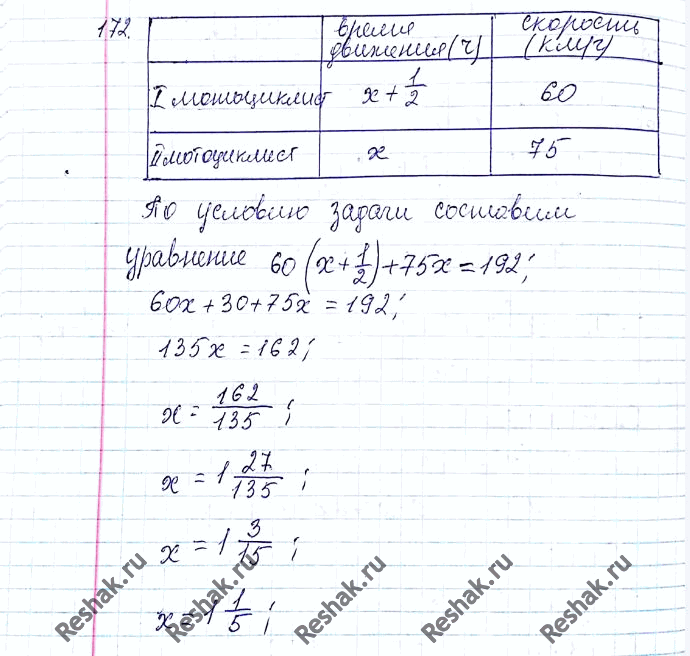 172.
время движения(ч) скорость (км/ч)
I мотоциклист x + 1/2 60
II мотоциклист x 75
По условию задачи составим
уравнение 60(x + 1/2) + 75x = 192;
60x + 30 + 75x = 192;
135x = 162;
x = 162/135;
x = 1 27/135;
x = 1 3/15;
x = 1 1/5;
Reshak.ru Reshak.ru Reshak.ru Reshak.ru Reshak.ru